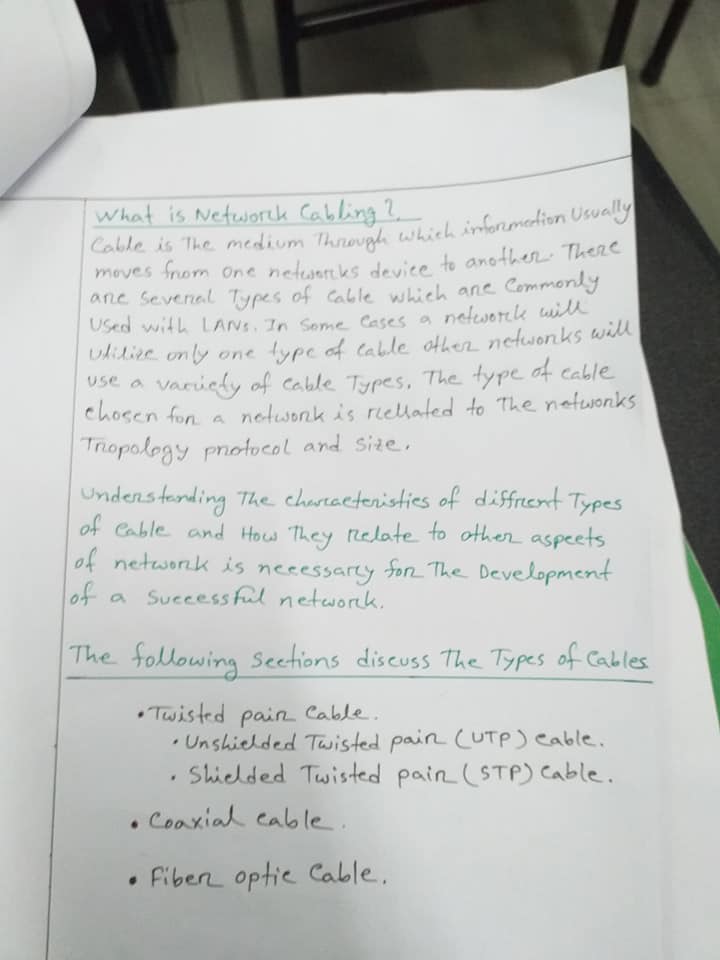 What is Network Cabling?
Cable is The medium Through which information Usually
moves from one networks device to another. There
are Several Types of Cable which are Commonly
Used with LANs. In Some Cases a network will
Utilize only one type of Cable other networks will
use a variety of Cable Types. The type of cable
chosen for a network is rellated to The networks
Tropology protocol and Size.
Understanding The characteristics of diffrent Types
of Cable and How They Relate to other aspects
of network is necessary for The Development
of a Successful network.
The following Sections discuss The Types of Cables
• Twisted pair Cable.
• Unshielded Twisted pair (UTP) Cable.
• Shielded Twisted pair (STP) Cable.
• Coaxial cable.
• Fiber optic Cable.